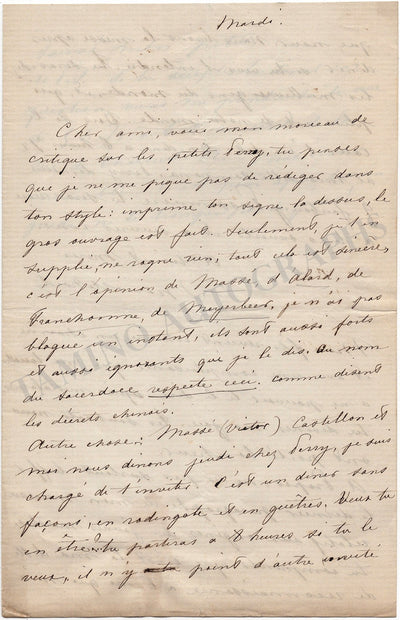 Mardi.
Cher ami, voici mon morceau de
critique sur les petits Perry, tu penses
que je ne me pique pas de rédiger dans
ton style: imprime ton signe là dessus, le
gros ouvrage est fait. Seulement, je t'en
supplie, ne rogne rien; tout cela est sincère,
c'est l'opinion de Massé, d'Alard, de
Franchomme, de Meyerbeer, je n'ai pas
blagué un instant, ils sont aussi forts
et aussi ignorants que je le dis. Au nom
du sacerdoce respecte ceci. comme disent
les décrets chinois.
Autre chose. Massé (Victor) Castellon et
moi nous dinons jeudi chez Perry, je suis
chargé de t'inviter. C'est un diner sans
façons, en redingote et en guêtres. Veux tu
en être? tu partiras à 8 heures si tu le
veux, il n'y a point d'autre invité
TAMINO AUTOGRAPHS